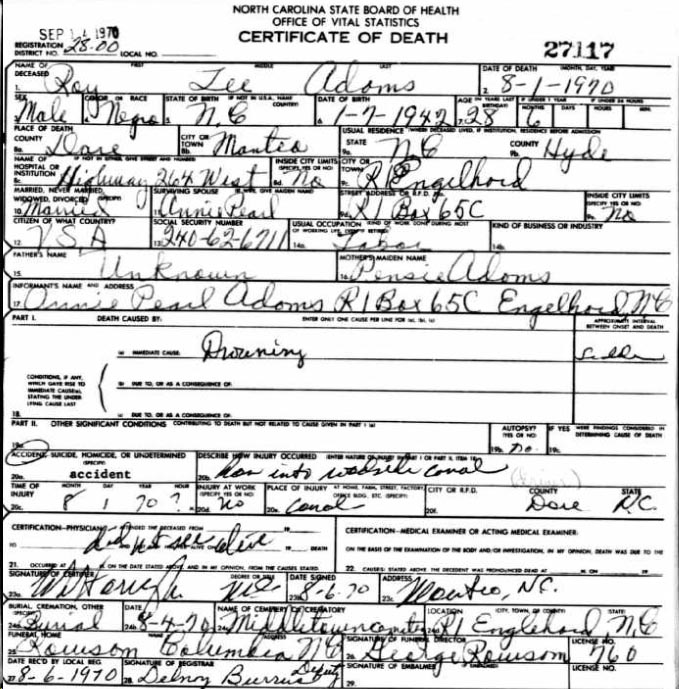 NORTH CAROLINA STATE BOARD OF HEALTH
OFFICE OF VITAL STATISTICS
SEP 14 1970 CERTIFICATE OF DEATH
REGISTRATION DISTRICT NO. 28.00 LOCAL NO. 27117
NAME OF DECEASED FIRST MIDDLE LAST DATE OF DEATH (MONTH, DAY, YEAR)
1. Roy Lee Adams 2. 8-1-1970
SEX COLOR OR RACE STATE OF BIRTH (IF NOT IN U.S.A., NAME COUNTRY) DATE OF BIRTH AGE (IN YEARS LAST BIRTHDAY) IF UNDER 1 YEAR IF UNDER 24 HOURS
Male Negro N.C 6. 1-7-1942 28 6 MONTHS DAYS HOURS MIN.
PLACE OF DEATH USUAL RESIDENCE (WHERE DECEASED LIVED, IF INSTITUTION, RESIDENCE BEFORE ADMISSION)
COUNTY CITY OR TOWN STATE COUNTY
8a. Dare 8b. Manteo 9a. NC 9b. Hyde
NAME OF HOSPITAL OR INSTITUTION (IF NOT IN EITHER, GIVE STREET AND NUMBER) INSIDE CITY LIMITS (SPECIFY YES OR NO) CITY OR TOWN
8c. Highway 264 West 8d. No 9c. R1 Engelhard
MARRIED, NEVER MARRIED, WIDOWED, DIVORCED (SPECIFY) SURVIVING SPOUSE (IF WIFE, GIVE MAIDEN NAME) STREET ADDRESS OR R.F.D. NO. INSIDE CITY LIMITS (SPECIFY YES OR NO)
10. Married 11. Annie Pearl R1 Box 65C 9e. No
CITIZEN OF WHAT COUNTRY? SOCIAL SECURITY NUMBER USUAL OCCUPATION (KIND OF WORK DONE DURING MOST OF WORKING LIFE, EVEN IF RETIRED) KIND OF BUSINESS OR INDUSTRY
12. U.S.A 13. 240-62-6711 14a. Labor 14b.
FATHER'S NAME MOTHER'S MAIDEN NAME
15. Unknown 16. Pensie Adams
INFORMANT'S NAME AND ADDRESS
17. Annie Pearl Adams R1 Box 65C Engelhard, N.C
PART I. DEATH CAUSED BY: ENTER ONLY ONE CAUSE PER LINE FOR (a), (b), (c) APPROXIMATE INTERVAL BETWEEN ONSET AND DEATH
(a) IMMEDIATE CAUSE: Drowning Sudden
CONDITIONS, IF ANY, WHICH GAVE RISE TO IMMEDIATE CAUSE(a), STATING THE UNDERLYING CAUSE LAST
(b) DUE TO, OR AS A CONSEQUENCE OF:
18. (c) DUE TO, OR AS A CONSEQUENCE OF:
PART II. OTHER SIGNIFICANT CONDITIONS CONTRIBUTING TO DEATH BUT NOT RELATED TO CAUSE GIVEN IN PART I (a) AUTOPSY? (YES OR NO) IF YES WERE FINDINGS CONSIDERED IN DETERMINING CAUSE OF DEATH
19a. 19b. No. 19c.
ACCIDENT, SUICIDE, HOMICIDE, OR UNDETERMINED (SPECIFY) DESCRIBE HOW INJURY OCCURRED (ENTER NATURE OF INJURY IN PART I OR PART II, ITEM 18)
20a. accident 20b. Ran into roadside canal
TIME OF INJURY MONTH DAY YEAR HOUR INJURY AT WORK (SPECIFY YES OR NO) PLACE OF INJURY AT HOME, FARM, STREET, FACTORY, OFFICE BLDG., ETC. (SPECIFY) CITY OR R.F.D. COUNTY STATE
20c. 8 1 70 ? 20d. No 20e. Canal 20f. Dare N.C.
CERTIFICATION-PHYSICIAN: ATTENDED THE DECEASED FROM 19 CERTIFICATION-MEDICAL EXAMINER OR ACTING MEDICAL EXAMINER:
TO did not see alive 19 DEATH ON THE BASIS OF THE EXAMINATION OF THE BODY AND/OR INVESTIGATION, IN MY OPINION, DEATH WAS DUE TO THE
21. OCCURRED AT M. ON THE DATE STATED ABOVE, AND IN MY OPINION, FROM THE CAUSES STATED 22. CAUSES STATED ABOVE THE DECEDENT WAS PRONOUNCED DEAD AT M. ON 19
SIGNATURE OF CERTIFIER DEGREE OR TITLE DATE SIGNED ADDRESS
23a. MD 23b. 8-6-70 23c. Manteo, N.C.
BURIAL, CREMATION, OTHER (SPECIFY) DATE NAME OF CEMETERY OR CREMATORY LOCATION (CITY, TOWN, OR COUNTY) STATE
24a. Burial 24b. 8-4-70 24c. Middletown cemetery 24d. R1 Englehard N.C
FUNERAL HOME NAME ADDRESS SIGNATURE OF FUNERAL DIRECTOR LICENSE NO.
25. Rowsom Columbia NC 26. George Rowsom 760
DATE REC'D BY LOCAL REG. SIGNATURE OF REGISTRAR SIGNATURE OF EMBALMER LICENSE NO.
27. 8-6-1970 28. Delnoy Burrus Deputy 29.